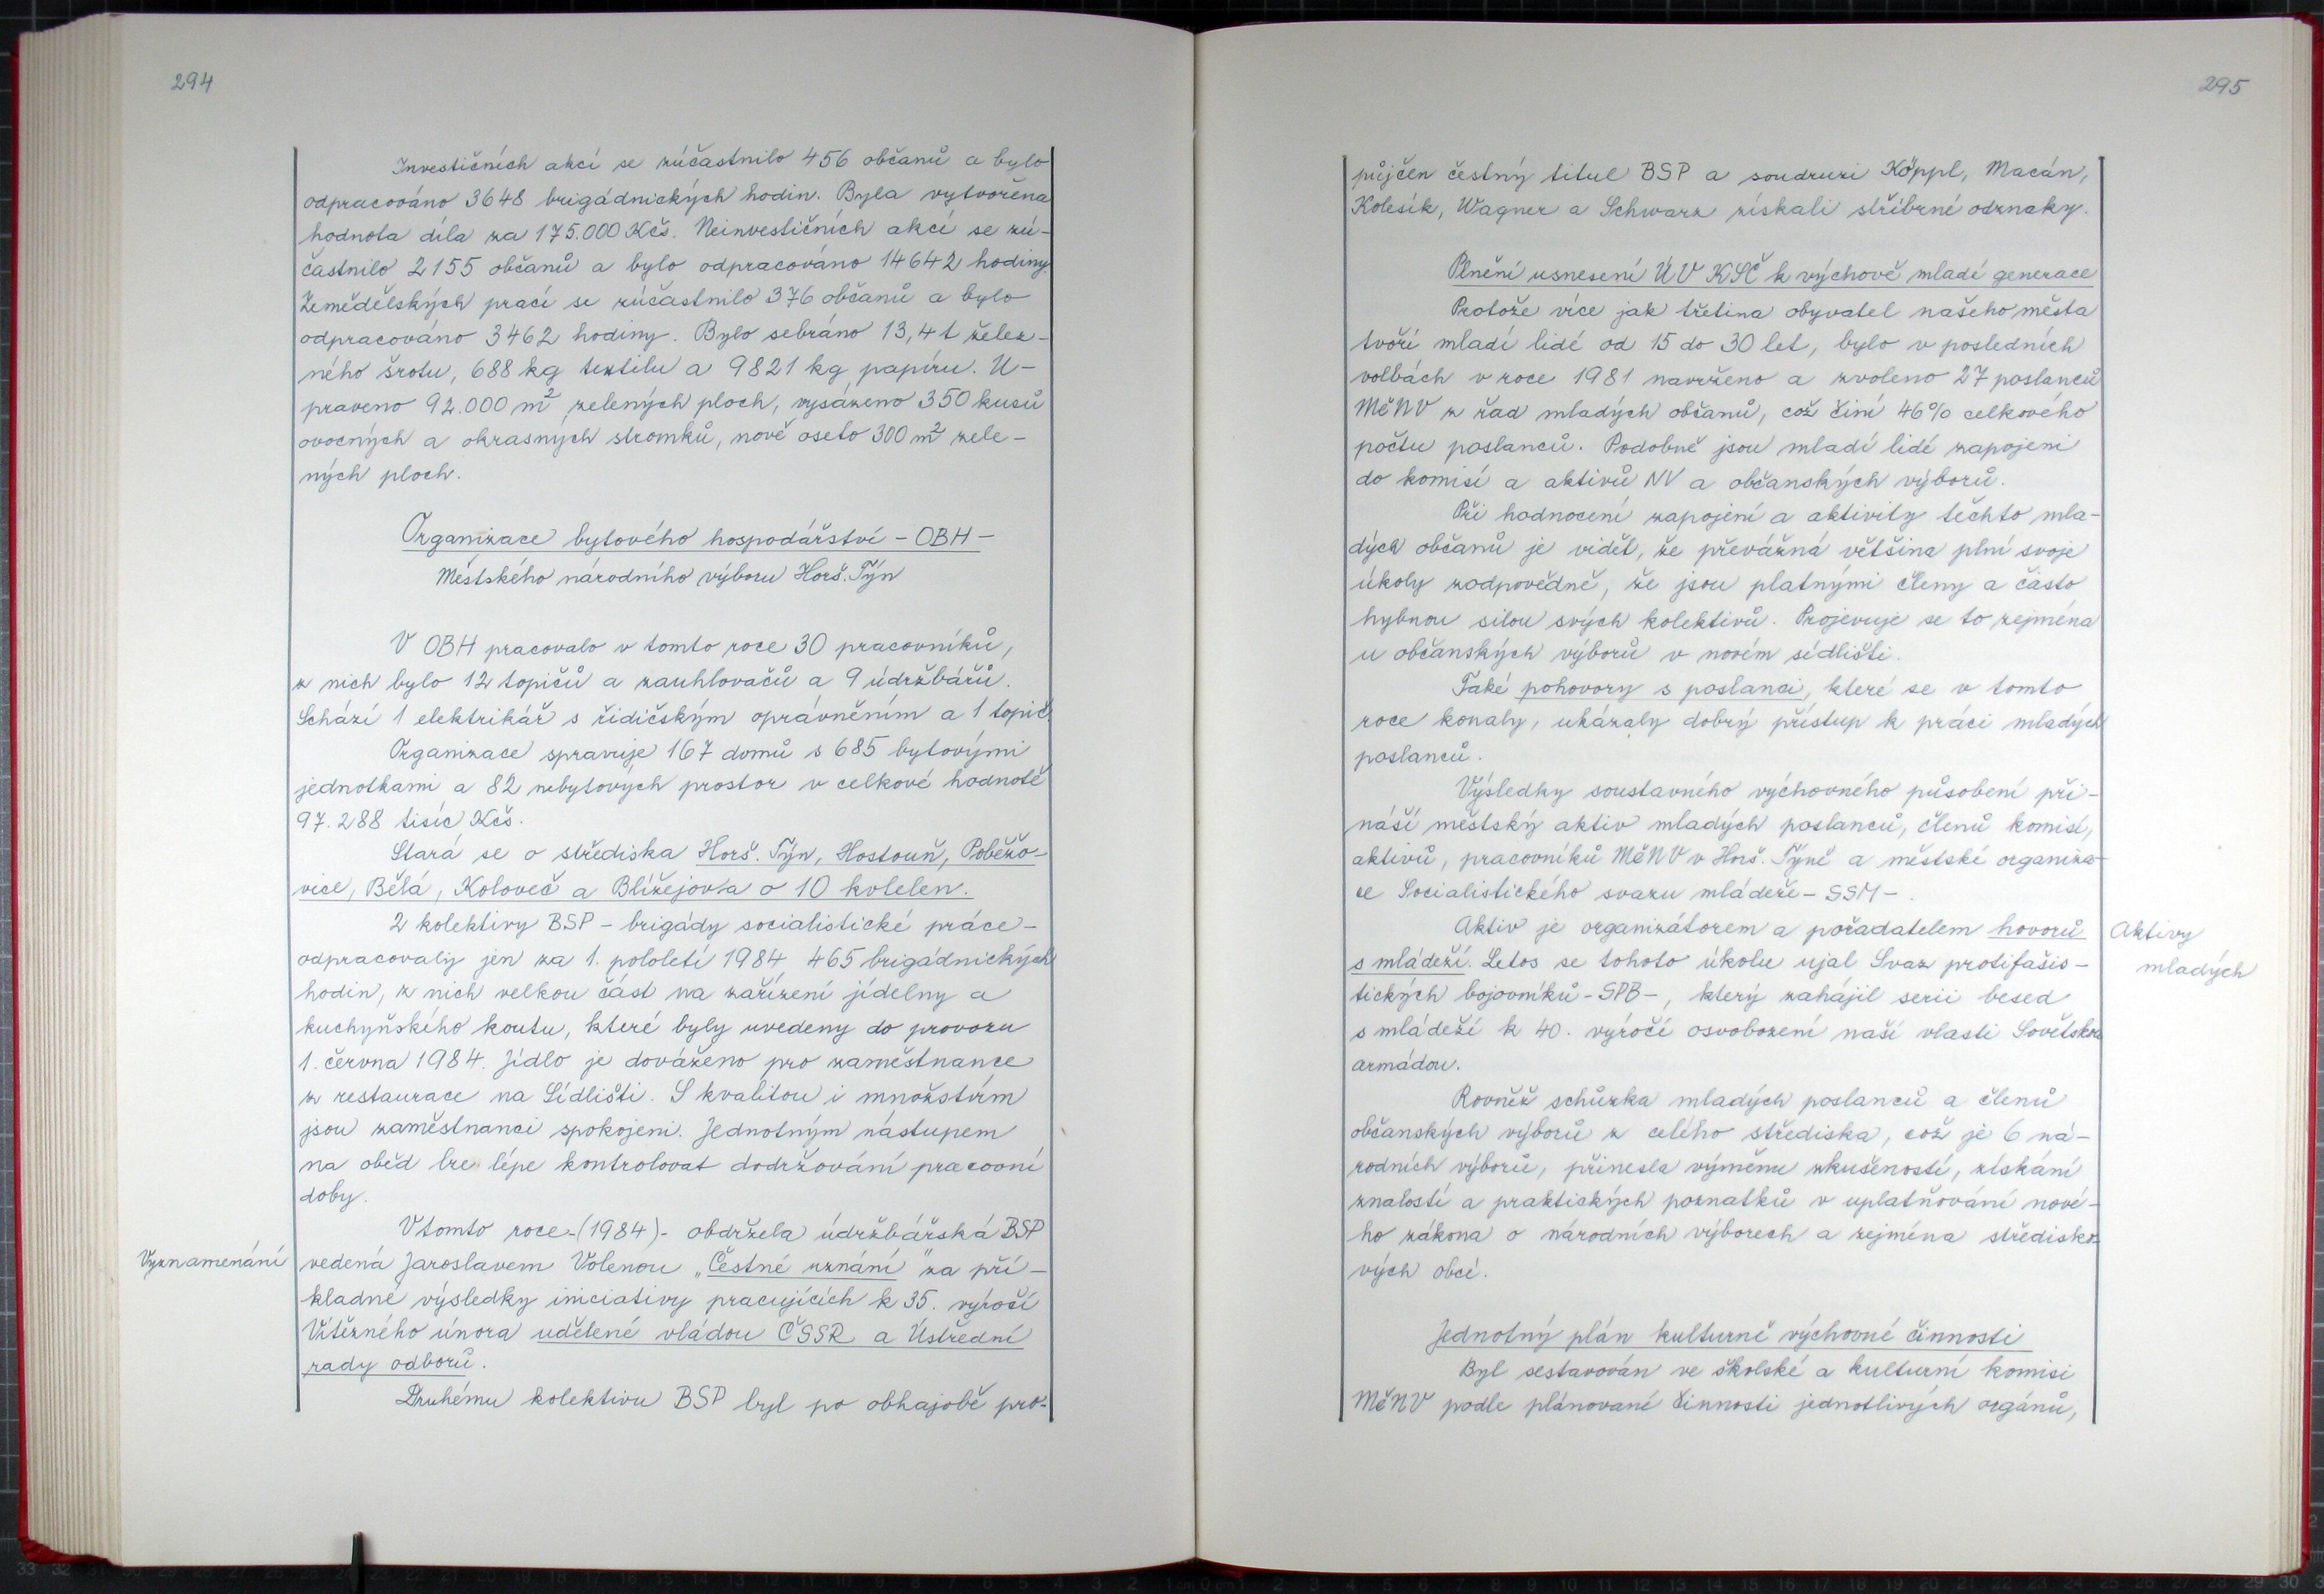 294
Investičních akcí se zúčastnilo 456 občanů a bylo
odpracováno 3648 brigádnických hodin. Byla vytvořena
hodnota díla za 175.000 Kčs. Neinvestičních akcí se zú-
častnilo 2155 občanů a bylo odpracováno 14642 hodiny.
Zemědělských prací se zúčastnilo 376 občanů a bylo
odpracováno 3462 hodiny. Bylo sebráno 13,4 t želez-
ného šrotu, 688 kg textilu a 9821 kg papíru. U-
praveno 92.000 m² zelených ploch, vysázeno 350 kusů
ovocných a okrasných stromků, nově oseto 300 m² zele-
ných ploch.
Organizace bytového hospodářství - OBH -
Městského národního výboru Horš. Týn
V OBH pracovalo v tomto roce 30 pracovníků,
z nich bylo 12 topičů a zauhlovačů a 9 údržbářů.
Schází 1 elektrikář s řidičským oprávněním a 1 topič.
Organizace spravuje 167 domů s 685 bytovými
jednotkami a 82 nebytových prostor v celkové hodnotě
97.288 tisíc Kčs.
Stará se o střediska Horš. Týn, Hostouň, Poběžo-
vice, Bělá, Koloveč a Blížejov a o 10 kotelen.
2 kolektivy BSP - brigády socialistické práce -
odpracovaly jen za 1. pololetí 1984 465 brigádnických
hodin, z nich velkou část na zařízení jídelny a
kuchyňského koutu, které byly uvedeny do provozu
1. června 1984. Jídlo je dováženo pro zaměstnance
z restaurace na Sídlišti. S kvalitou i množstvím
jsou zaměstnanci spokojeni. Jednotným nástupem
na oběd lze lépe kontrolovat dodržování pracovní
doby.
V tomto roce - (1984) - obdržela údržbářská BSP
Vyznamenání
vedená Jaroslavem Volenou „Čestné uznání" za pří-
kladné výsledky iniciativy pracujících k 35. výročí
Vítězného února udělené vládou ČSSR a Ústřední
rady odborů.
Druhému kolektivu BSP byl po obhajobě pro-
295
půjčen čestný titul BSP a soudruzi Köppl, Macán,
Kolesík, Wagner a Schwarz získali stříbrné odznaky.
Plnění usnesení ÚV KSČ k výchově mladé generace
Protože více jak třetina obyvatel našeho města
tvoří mladí lidé od 15 do 30 let, bylo v posledních
volbách v roce 1981 navrženo a zvoleno 27 poslanců
MěNV z řad mladých občanů, což činí 46% celkového
počtu poslanců. Podobně jsou mladí lidé zapojeni
do komisí a aktivů NV a občanských výborů.
Při hodnocení zapojení a aktivity těchto mla-
dých občanů je vidět, že převážná většina plní svoje
úkoly zodpovědně, že jsou platnými členy a často
hybnou silou svých kolektivů. Projevuje se to zejména
u občanských výborů v novém sídlišti.
Také pohovory s poslanci, které se v tomto
roce konaly, ukázaly dobrý přístup k práci mladých
poslanců.
Výsledky soustavného výchovného působení při-
náší městský aktiv mladých poslanců, členů komisí,
aktivů, pracovníků MěNV v Horš. Týně a městské organiza-
ce Socialistického svazu mládeže - SSM - .
Aktiv je organizátorem a pořadatelem hovorů
Aktivy
mladých
s mládeží. Letos se tohoto úkolu ujal Svaz protifašis-
tických bojovníků - SPB -, který zahájil serii besed
s mládeží k 40. výročí osvobození naší vlasti Sovětskou
armádou.
Rovněž schůzka mladých poslanců a členů
občanských výborů z celého střediska, což je 6 ná-
rodních výborů, přinesla výměnu zkušeností, získání
znalostí a praktických poznatků v uplatňování nové-
ho zákona o národních výborech a zejména středisko-
vých obcí.
Jednotný plán kulturně výchovné činnosti
Byl sestavován ve školské a kulturní komisi
MěNV podle plánované činnosti jednotlivých orgánů,